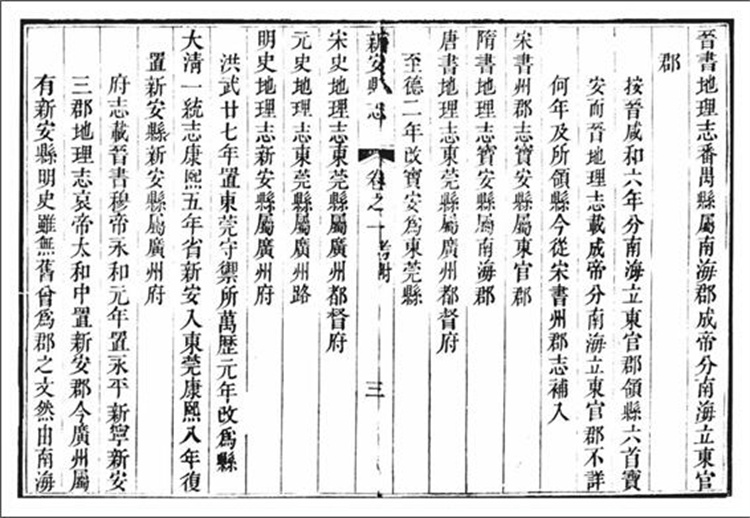 晉書地理志番禺縣屬南海郡成帝分南海立東官
郡
按晉咸和六年分南海立東官郡領縣六首寶
安而晉地理志載成帝分南海立東官郡不詳
何年及所領縣今從宋書州郡志補入
宋書州郡志寶安縣屬東官郡
隋書地理志寶安縣屬南海郡
唐書地理志東莞縣屬廣州都督府
至德二年改寶安為東莞縣
新安縣志
卷之一
三
宋史地理志東莞縣屬廣州都督府
元史地理志東莞縣屬廣州路
明史地理志新安縣屬廣州府
洪武廿七年置東莞守禦所萬歷元年改為縣
大清一統志康熙五年省新安入東莞康熙八年復
置新安縣新安縣屬廣州府
府志載晉書穆帝永和元年置永平新寧新安
三郡地理志哀帝太和中置新安郡今廣州屬
有新安縣明史雖無舊曾為郡之文然由南海